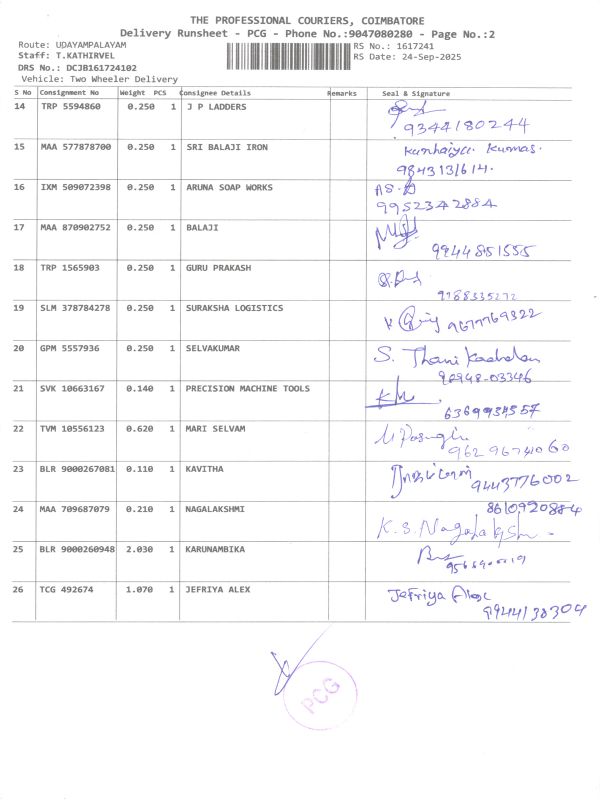 THE PROFESSIONAL COURIERS, COIMBATORE
Delivery Runsheet - PCG - Phone No.:9047080280 - Page No.:2
Route: UDAYAMPALAYAM RS No.: 1617241
Staff: T.KATHIRVEL RS Date: 24-Sep-2025
DRS No.: DCJB161724102
Vehicle: Two Wheeler Delivery
S No Consignment No Weight PCS Consignee Details Remarks Seal & Signature
14 TRP 5594860 0.250 1 J P LADDERS
9344180244
15 MAA 577878700 0.250 1 SRI BALAJI IRON Kanhaiya Kumar.
9843131614.
16 IXM 509072398 0.250 1 ARUNA SOAP WORKS
9952342884
17 MAA 870902752 0.250 1 BALAJI
9944851555
18 TRP 1565903 0.250 1 GURU PRAKASH
9788335272
19 SLM 378784278 0.250 1 SURAKSHA LOGISTICS
9677769322
20 GPM 5557936 0.250 1 SELVAKUMAR S.
92948-03346
21 SVK 10663167 0.140 1 PRECISION MACHINE TOOLS
6369934557
22 TVM 10556123 0.620 1 MARI SELVAM
9629674060
23 BLR 9000267081 0.110 1 KAVITHA
9443776002
24 MAA 709687079 0.210 1 NAGALAKSHMI 8610920884
K.S. Nagalakshmi
25 BLR 9000260948 2.030 1 KARUNAMBIKA
26 TCG 492674 1.070 1 JEFRIYA ALEX Jefriya Alex
9944138304
PCG